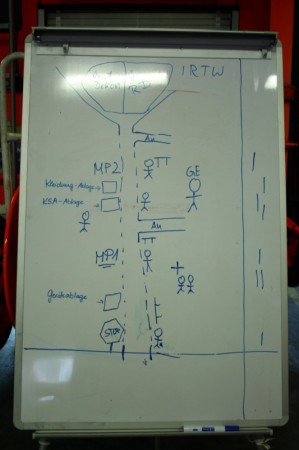 IRTW
Au
MP2
GE
Kleidung-Ablage
KSA-Ablage
Au
MP1
Geräteablage
STOP